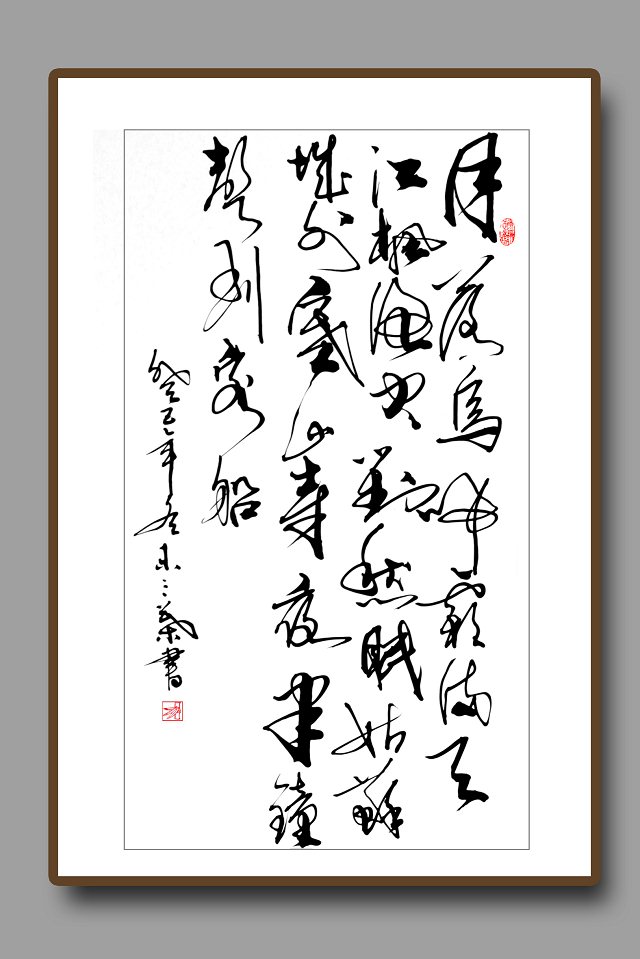 月落烏啼霜滿天
江楓漁火對愁眠姑蘇
城外寒山寺夜半鐘
聲到客船
癸巳年冬書